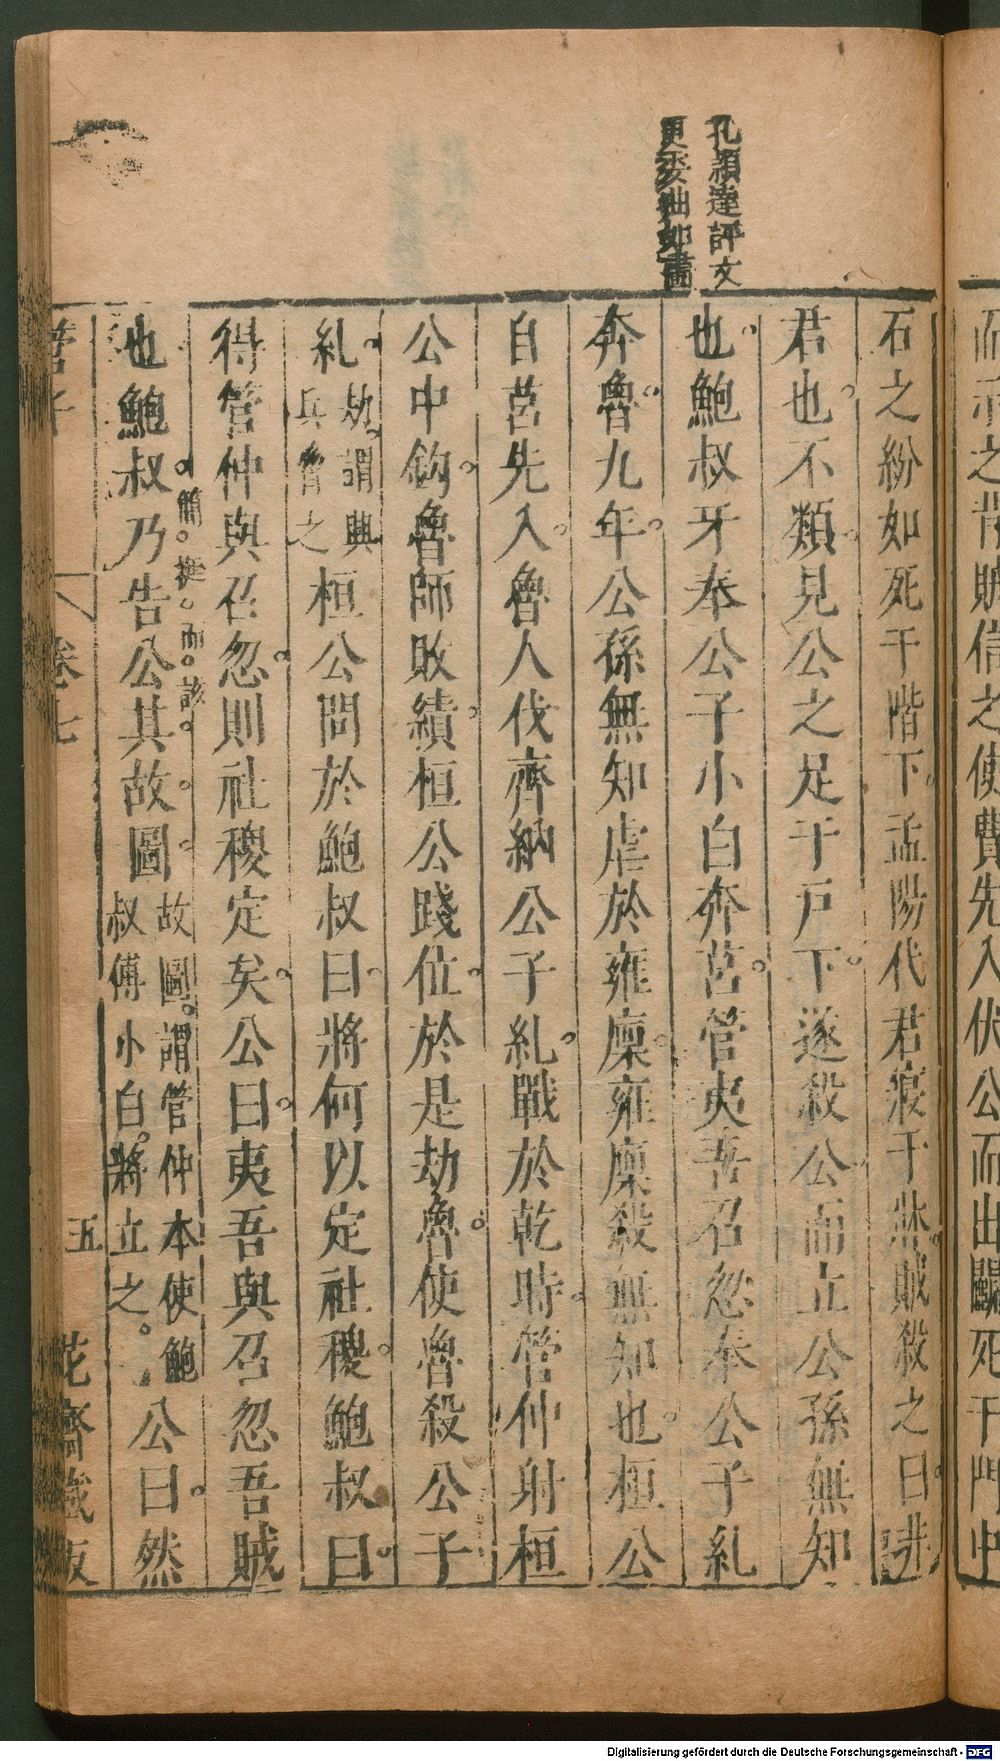 而示之背賊信之使費先入伏公而出鬬死于門中
孔頴達評文
更委曲如畫
石之紛如死于階下孟陽代君寢于牀賊殺之曰非
君也不類見公之足于戸下遂殺公而立公孫無知
也鮑叔牙奉公子小白奔莒管夷吾召忽奉公子糺
奔魯九年公孫無知虐於雍廩雍廩殺無知也桓公
自莒先入魯人伐齊納公子糺戰於乾時管仲射桓
公中鈎魯師敗績桓公踐位於是劫魯使魯殺公子
糺劫謂興兵脅之桓公問於鮑叔曰將何以定社稷鮑叔曰
得管仲與召忽則社稷定矣公曰夷吾與召忽吾賊
簡挺而該
也鮑叔乃告公其故圖故圖謂管仲本使鮑叔傅小白將立之公曰然
管子 卷七 五 花齋藏板
Digitalisierung gefördert durch die Deutsche Forschungsgemeinschaft - DFG